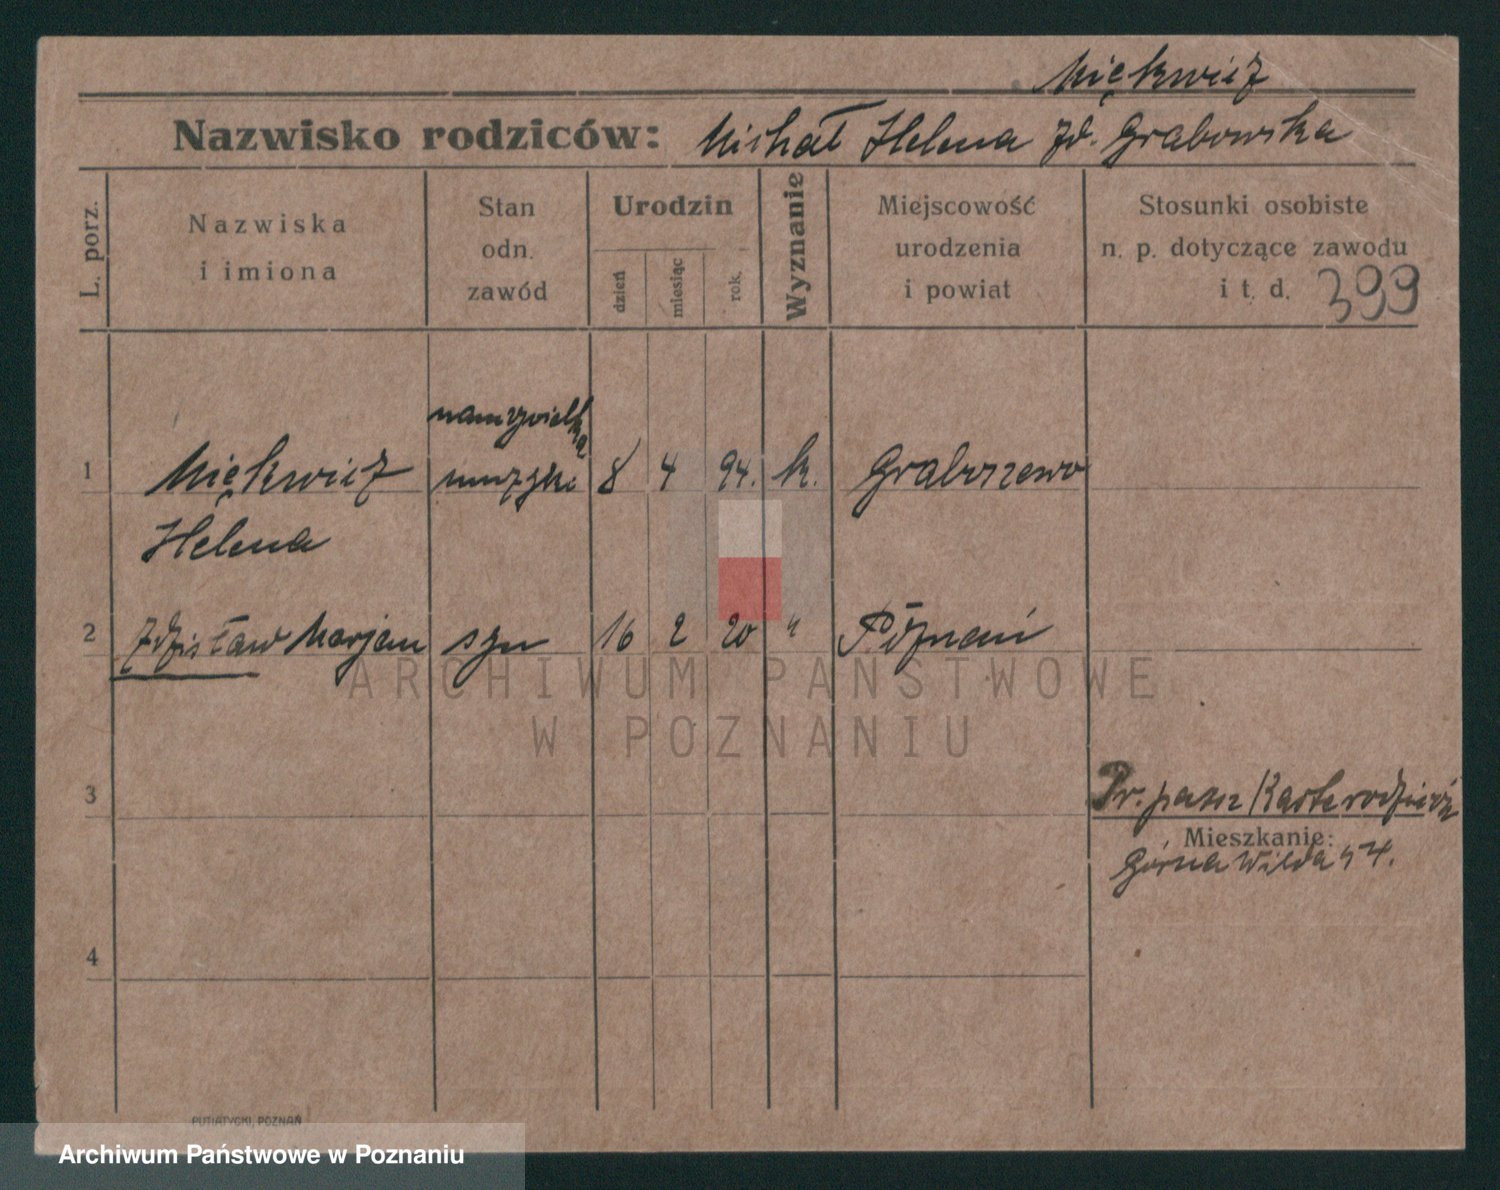 Miękwicz
Nazwisko rodziców: Michał Helena zd. Grabowska
L. porz.
Nazwiska
i imiona
Stan
odn.
zawód
Urodzin
dzień
miesiąc
rok.
Wyznanie
Miejscowość
urodzenia
i powiat
Stosunki osobiste
n. p. dotyczące zawodu
i t. d. 399
1 Miękwicz muzyki 8 4 94. k.
Helena
2 Zdzisław Marjan syn 16 2 20 " Poznań
ARCHIWUM PAŃSTWOWE
W POZNANIU
3
Mieszkanie:
Górna Wilda
4
PUTIATYCKI, POZNAŃ
Archiwum Państwowe w Poznaniu